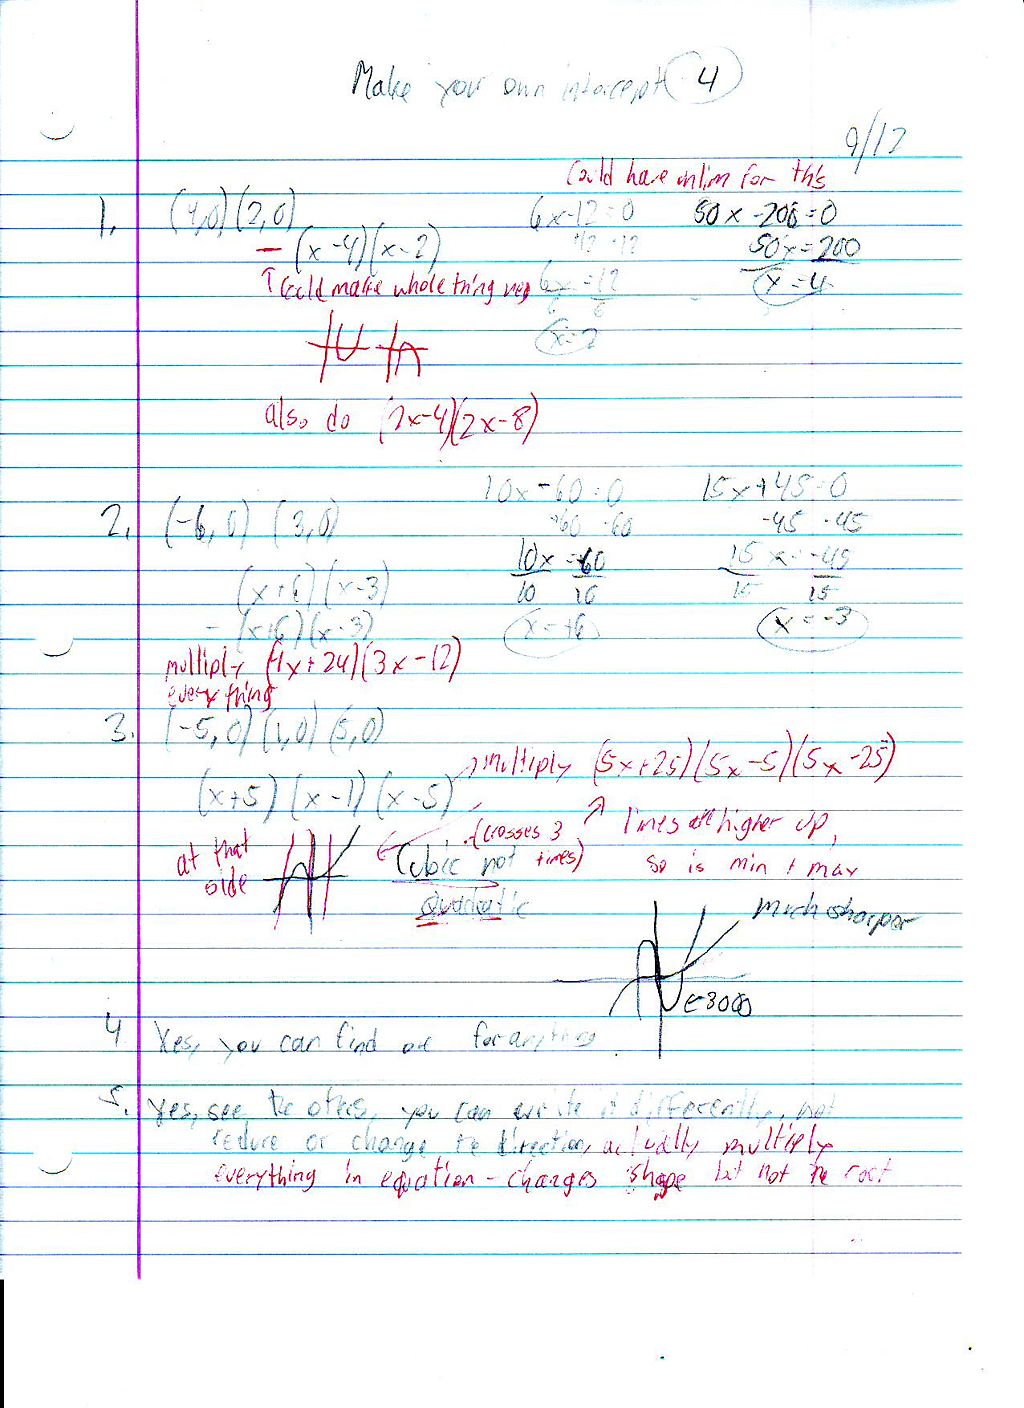 Make your own intercept 4
9/17
Could have inlim for this
1. (4,0)(2,0)
6x-12=0 50x-200=0
- (x-4)(x-2)
+12 +12 50x=200
↑ Could make whole thing neg
6x=12 x=4
6 6
x=2
also do (2x-4)(2x-8)
10x-60=0 15x+45=0
2. (-6,0) (3,0)
+60 -60 -45 -45
10x=60 15x=-45
(x+6)(x-3)
10 10 15 15
-(x+6)(x-3)
x=+6 x=-3
multiply (4x+24)(3x-12)
everything
3. (-5,0)(1,0)(5,0)
multiply (5x+25)(5x-5)(5x-25)
(x+5)(x-1)(x-5)
at that side
Cubic not
Quadratic
(crosses 3
times)
lines are higher up,
so is min + max
much sharper
←3000
4 Yes, you can find one for anything
5. Yes, see the others, you can write it differently, not
reduce or change the direction, actually multiply
everything in equation - changes shape but not the root